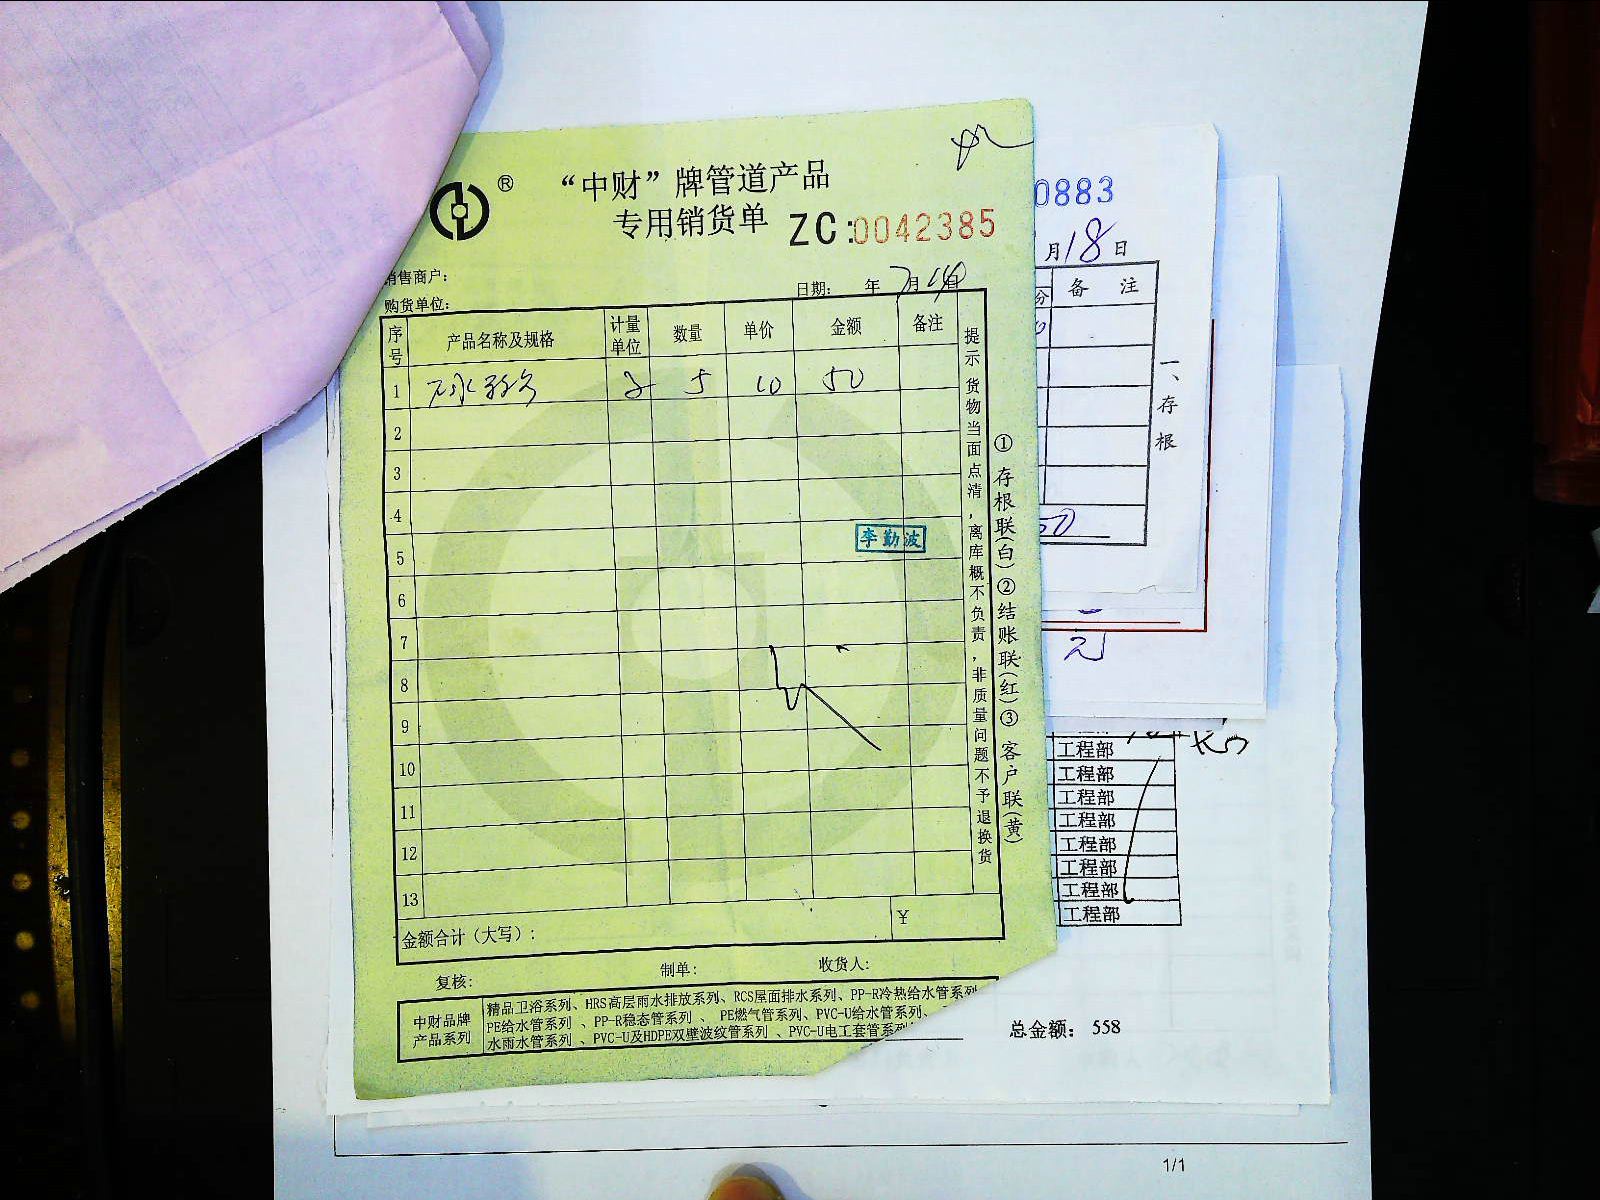 ®
“中财”牌管道产品
专用销货单 ZC:0042385
销售商户:
购货单位:
日期: 年 7月 日
序号 产品名称及规格 计量单位 数量 单价 金额 备注
1 5 10 50
2
3
4
5
李勤波
6
7
8
9
10
11
12
13
金额合计（大写）: ¥
复核: 制单: 收货人:
中财品牌产品系列
精品卫浴系列、HRS高层雨水排放系列、RCS屋面排水系列、PP-R冷热给水管系列
PE给水管系列 、PP-R稳态管系列 、 PE燃气管系列、PVC-U给水管系列、
水雨水管系列 、PVC-U及HDPE双壁波纹管系列 、PVC-U电工套管系列
提示 货物当面点清，离库概不负责，非质量问题不予退换货
①存根联(白)②结账联(红)③客户联(黄)
0883
月18日
分 备 注
一、存根
50
元
工程部
工程部
工程部
工程部
工程部
工程部
工程部
工程部
总金额: 558
1/1